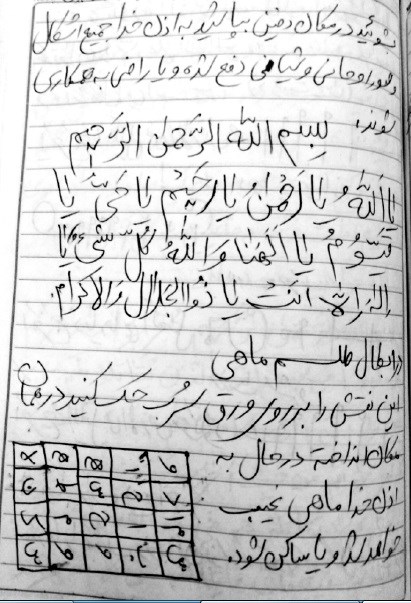 بنوئید در مکان دفین بپاشید به اذن خدا جمیع اشکال
و امور روحانی و شیاطینی دفع شده و یا راضی به همکاری
شوند.
بسم الله الرحمن الرحیم
یا الله یا رحمن یا رحیم یا حی یا
قیوم یا الهنا و اله کل شیء یا
اله الا انت یا ذو الجلال و الاکرام.
در ابطال طلسم ماهی
این نقش را بر روی ورق سرب حک کنید در همان
مکان انداخته در حال به
اذن خدا ماهی غیب
خواهد شد و یا ساکن شود.